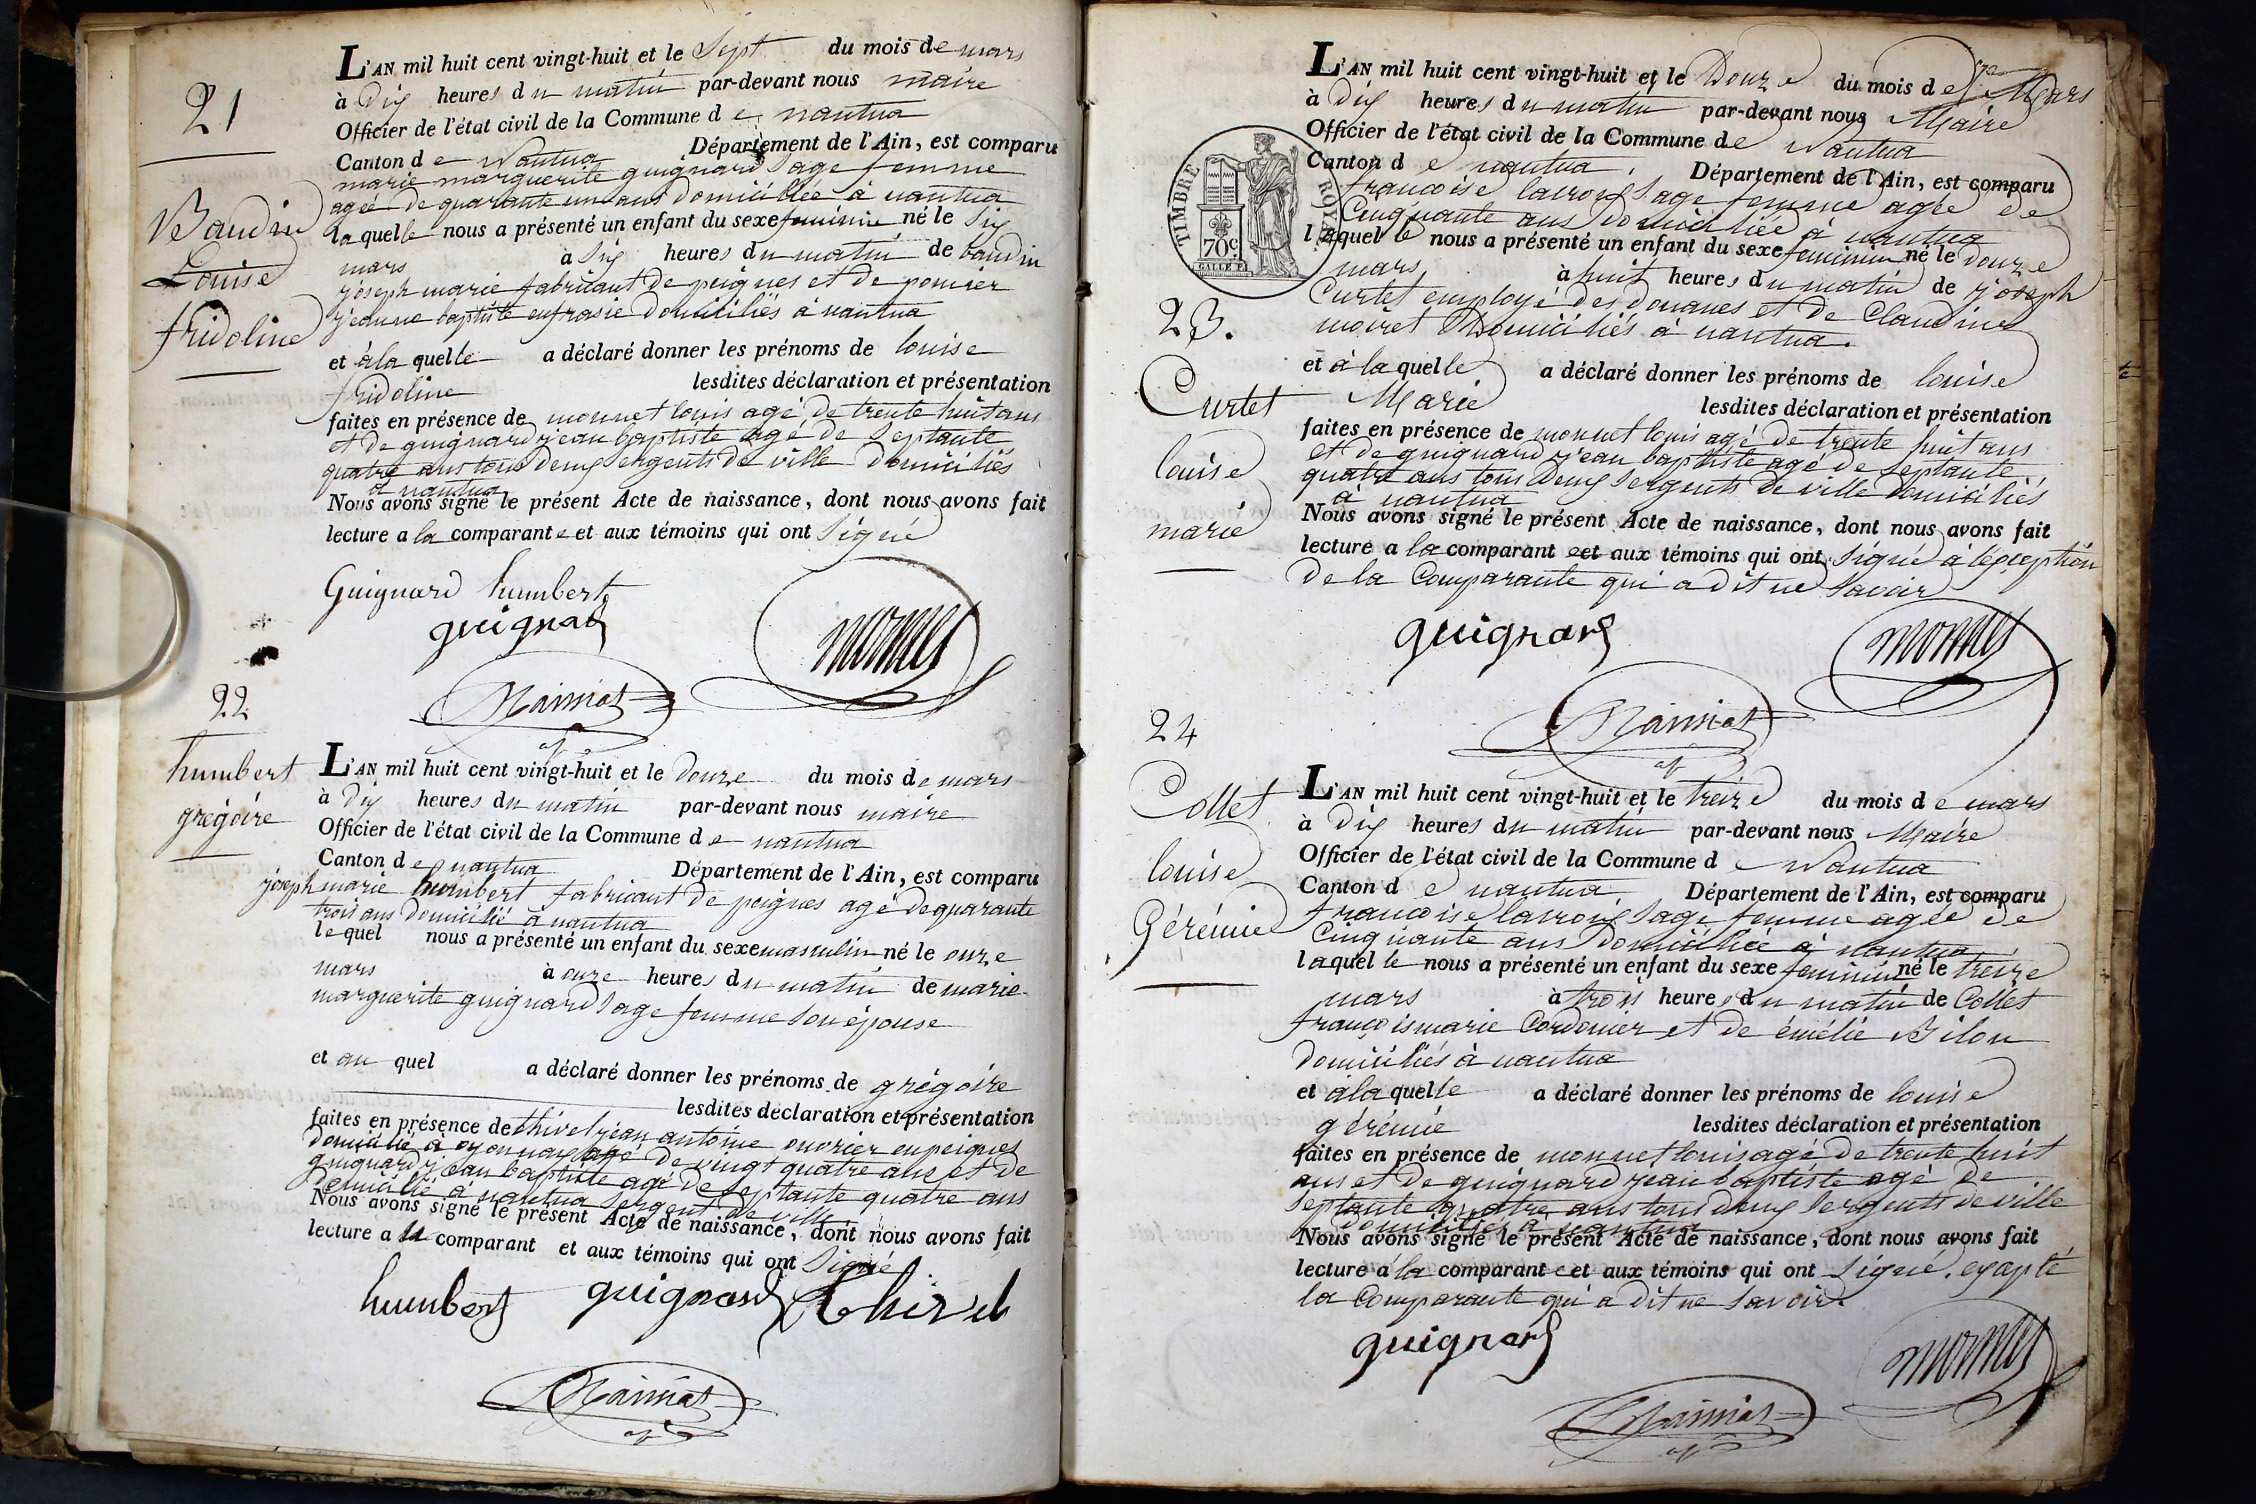 21
Baudin
Louise
fridoline
L'AN mil huit cent vingt-huit et le Sept du mois de mars
à dix heures du matin par-devant nous maire
Officier de l'état civil de la Commune de nantua
Canton de Nantua Département de l'Ain, est comparu
marie marguerite guignard Sage femme
agée de quarante un ans domiciliée à nantua
laquelle nous a présenté un enfant du sexe feminin né le Six
mars à Six heures du matin de baudin
joseph marie fabricant de peignes et de
jeanne baptiste eufrasie Domiciliés à nantua
et à la quelle a déclaré donner les prénoms de louise
fridoline lesdites déclaration et présentation
faites en présence de monnet louis agé de trente huit ans
et de guignard jean baptiste agé de Septante
quatre ans tous deux Sergents de ville domiciliés
à nantua
Nous avons signé le présent Acte de naissance, dont nous avons fait
lecture a la comparante et aux témoins qui ont Signé
Guignard humbert
guignard monnet
22
humbert
grégoire
L'AN mil huit cent vingt-huit et le douze du mois de mars
à dix heures du matin par-devant nous maire
Officier de l'état civil de la Commune de nantua
Canton de nantua Département de l'Ain, est comparu
joseph marie humbert fabricant de peignes agé de quarante
trois ans domicilié à nantua
lequel nous a présenté un enfant du sexe masculin né le onze
mars à onze heures du matin de marie
marguerite guignard Sage femme Son épouse
et au quel a déclaré donner les prénoms de grégoire
lesdites déclaration et présentation
faites en présence de thivel jean antoine ouvrier en peignes
domicilié à oyonnax agé de vingt quatre ans et de
guignard jean baptiste agé de Septante quatre ans
domicilié à nantua Sergent de ville
Nous avons signé le présent Acte de naissance, dont nous avons fait
lecture a le comparant et aux témoins qui ont Signé
humbert guignard Thivel
TIMBRE ROYAL
70c.
23.
Curtet
louise
marie
L'AN mil huit cent vingt-huit et le Douze du mois de Mars
à Dix heures du matin par-devant nous Maire
Officier de l'état civil de la Commune de Nantua
Canton de nantua Département de l'Ain, est comparu
francoise lacroix Sage femme agée de
Cinquante ans Domiciliée à nantua
laquelle nous a présenté un enfant du sexe feminin né le douze
mars à huit heures du matin de joseph
Curtet employé des douanes et de Claudine
moiret Domiciliés à nantua.
et à la quelle a déclaré donner les prénoms de louise
Marie lesdites déclaration et présentation
faites en présence de monnet louis agé de trente huit ans
et de guignard jean baptiste agé de Septante
quatre ans tous deux Sergents de ville domiciliés
à nantua
Nous avons signé le présent Acte de naissance, dont nous avons fait
lecture a la comparante et aux témoins qui ont Signé à l'éxception
de la Comparante qui a dit ne Savoir
guignard monnet
24
Collet
louise
Gérémie
L'AN mil huit cent vingt-huit et le treize du mois de mars
à Dix heures du matin par-devant nous Maire
Officier de l'état civil de la Commune de Nantua
Canton de nantua Département de l'Ain, est comparu
francoise lacroix Sage femme agée de
Cinquante ans Domiciliée à nantua
laquelle nous a présenté un enfant du sexe feminin né le treize
mars à trois heures du matin de Collet
françois marie Cordonier et de émélie Bilon
domiciliés à nantua
et à la quelle a déclaré donner les prénoms de louise
gérémie lesdites déclaration et présentation
faites en présence de monnet louis agé de trente huit
ans et de guignard jean baptiste agé de
Septante quatre ans tous deux Sergents de ville
domiciliés à nantua
Nous avons signé le présent Acte de naissance, dont nous avons fait
lecture a la comparante et aux témoins qui ont Signé. exapté
la Comparante qui a dit ne Savoir.
guignard monnet